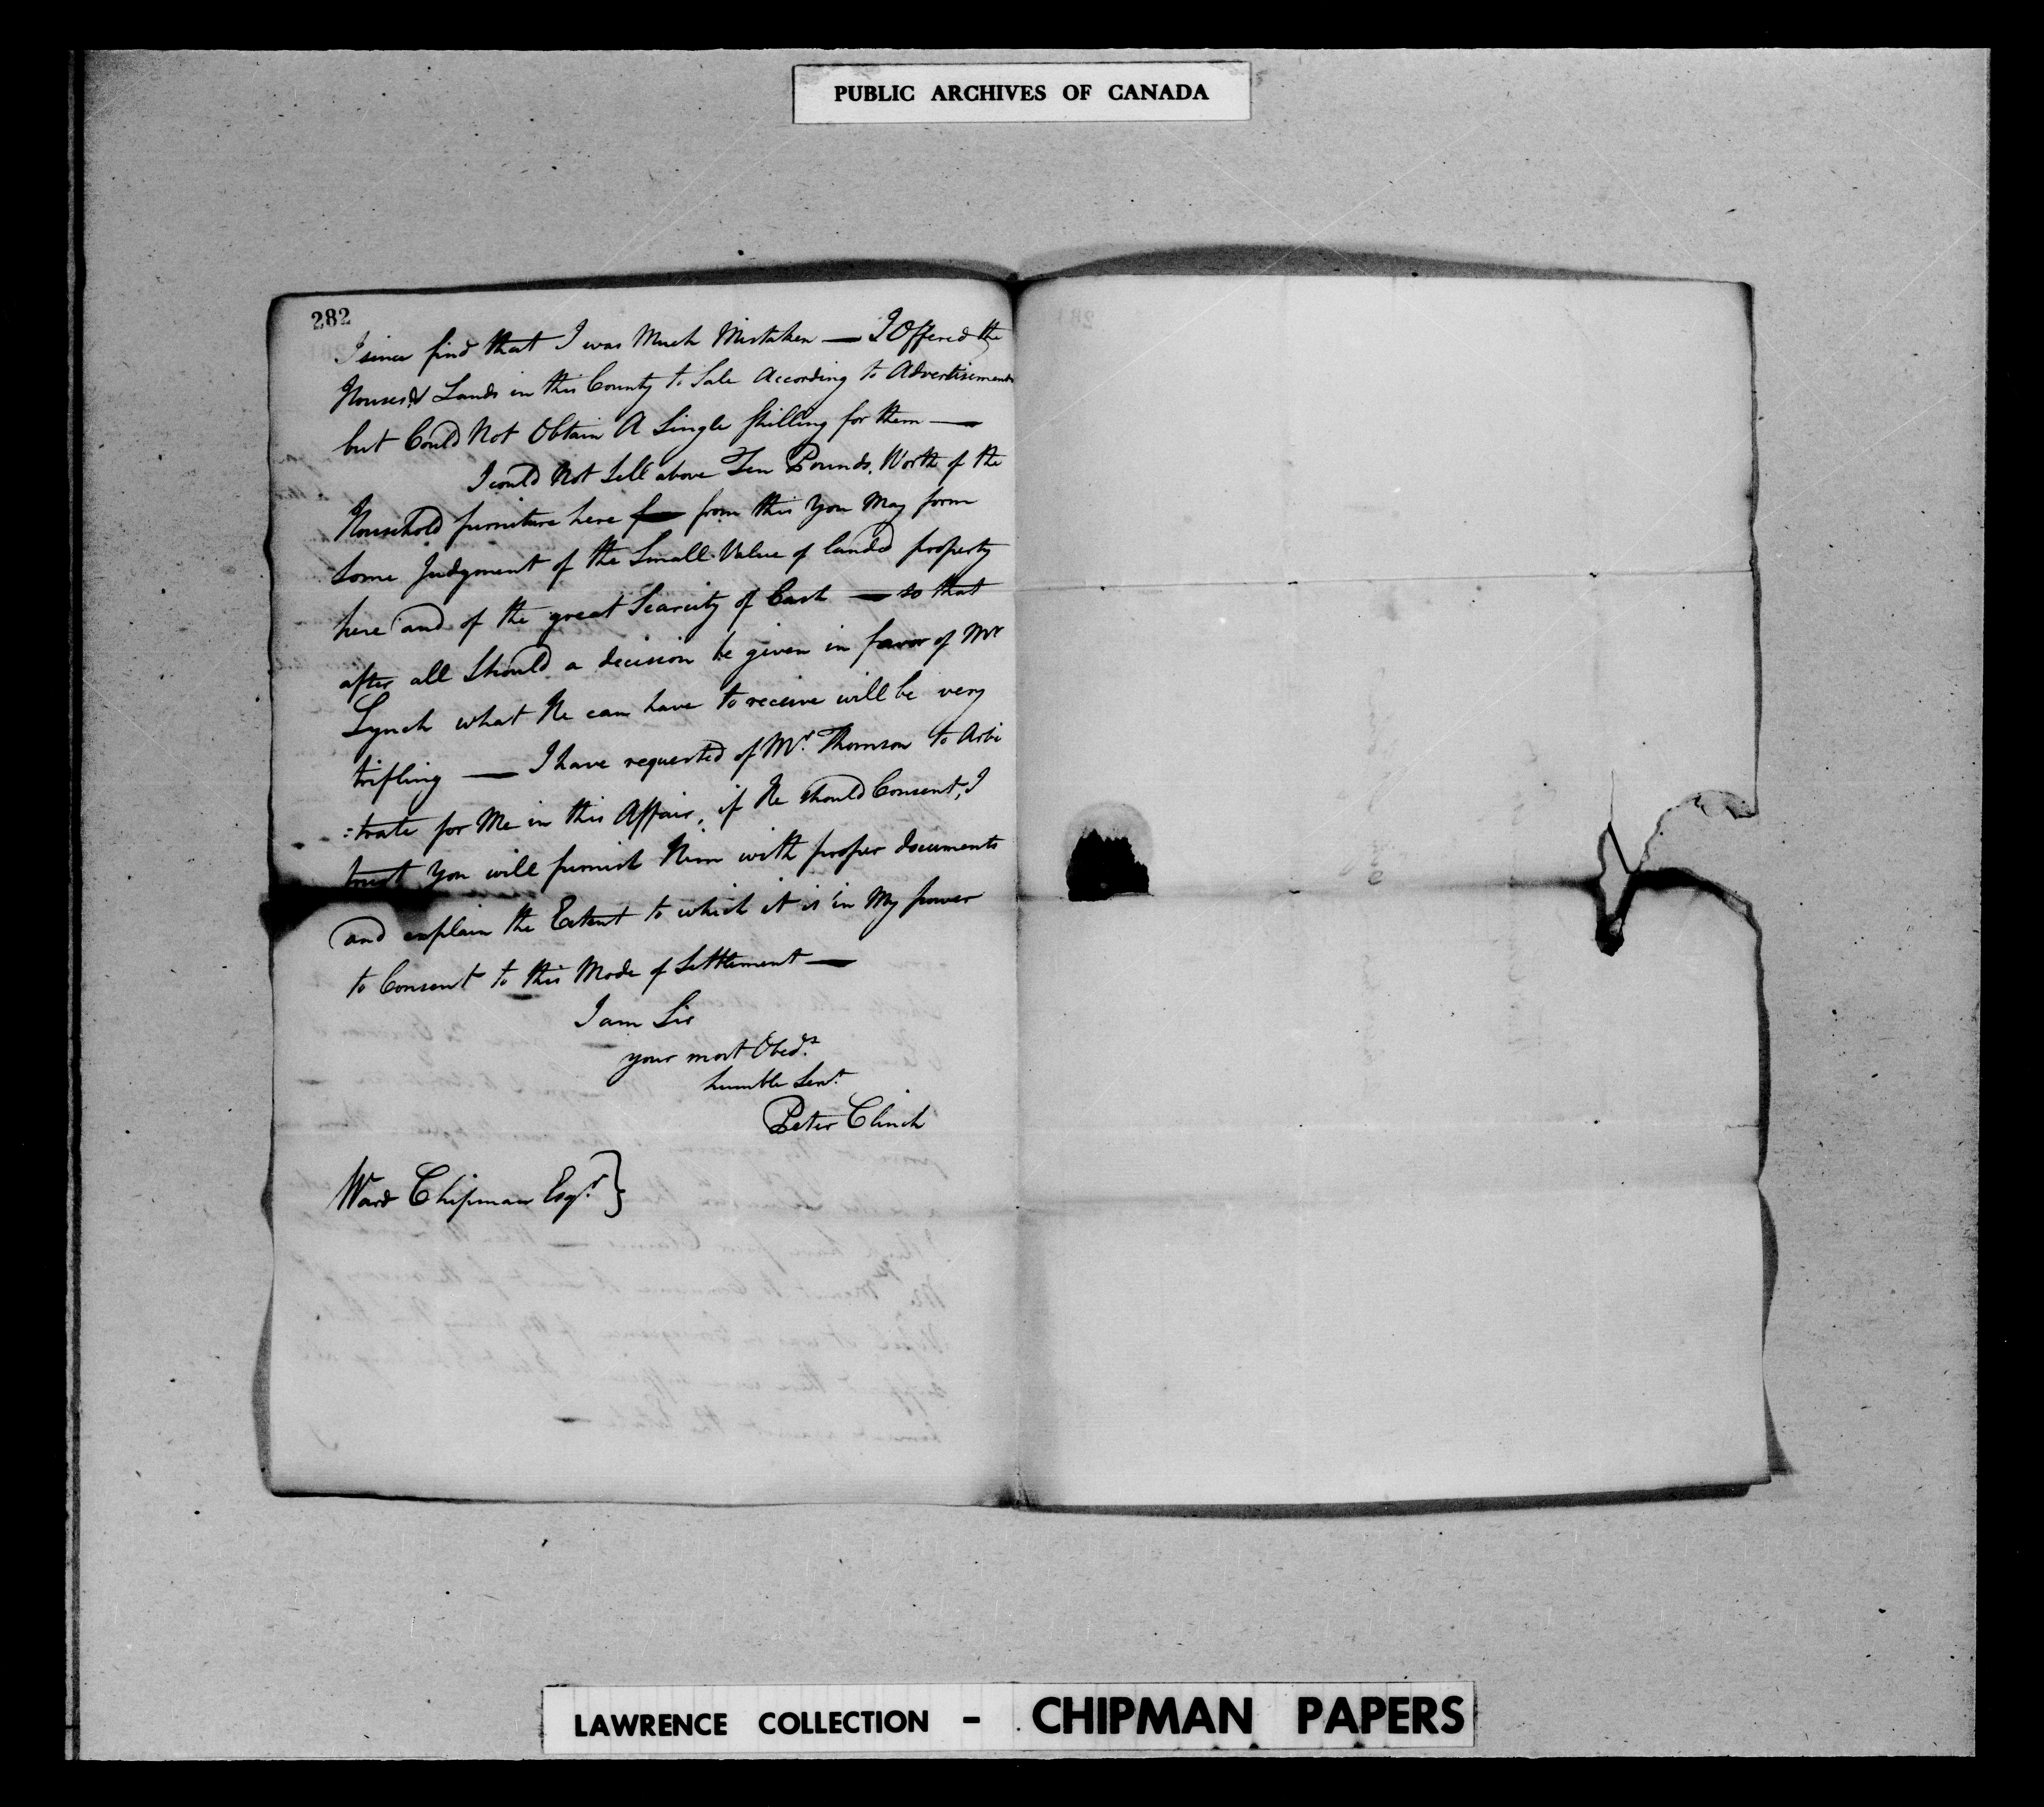 PUBLIC ARCHIVES OF CANADA
282
I since find that I was Much Mistaken — I Offered the
Houses & Lands in this County to Sale According to Advertisement
but Could Not Obtain A Single Shilling for them —
I could Not Sell above Ten Pounds Worth of the
Household furniture here — from this You May form
Some Judgment of the Small Value of landed property
here and of the great Scarcity of Cash — so that
after all Should a decision be given in favor of Mr
Lynch what He can have to receive will be very
trifling — I have requested of Mr. Thomson to Arbi
:trate for Me in this Affair, if He should Consent, I
trust You will furnish Him with proper documents
and explain the Extent to which it is in My power
to Consent to this Mode of Settlement —
I am Sir
your most Obedt.
humble Servt.
Peter Clinch
Ward Chipman Esqr. }
LAWRENCE COLLECTION - CHIPMAN PAPERS